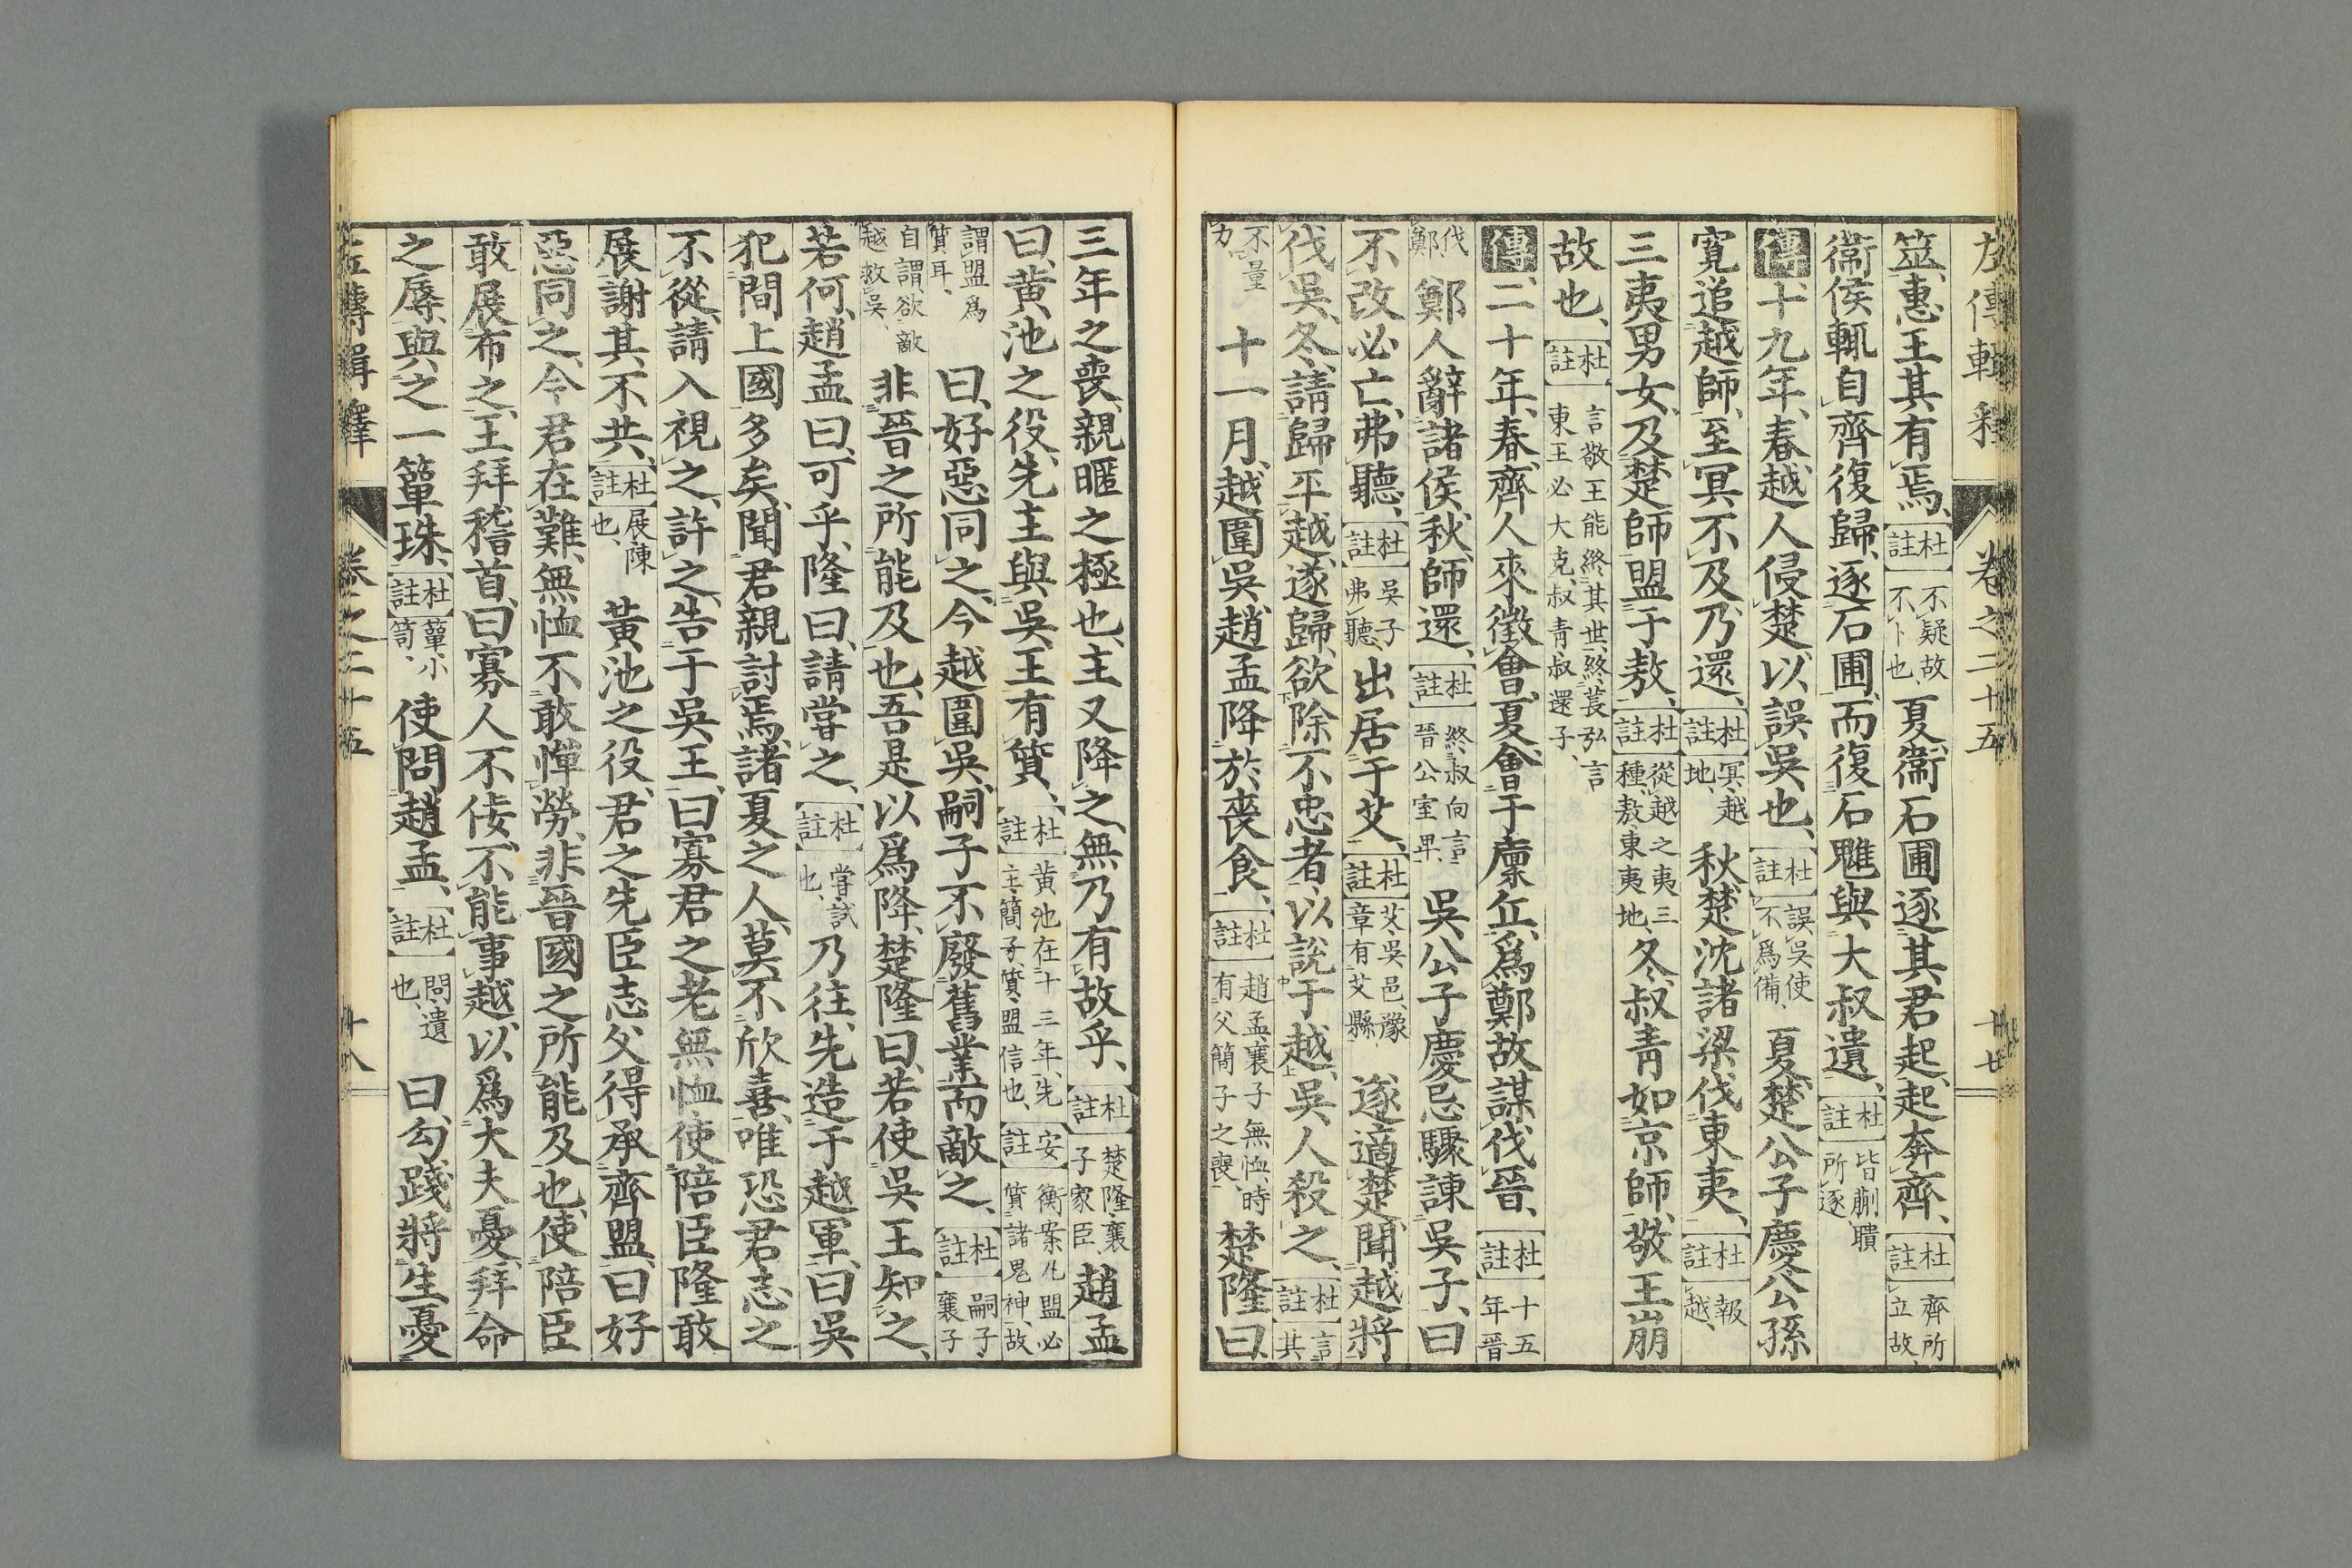 左傳輯釋 卷之二十五
筮惠王其有焉、杜註不疑故不卜也、夏衞石圃逐其君起、起奔齊、杜註齊所立故、
衞侯輒自齊復歸、逐石圃、而復石魋與大叔遺、杜註皆蒯聵所逐、
傳、十九年、春、越人侵楚、以誤吳也、杜註誤吳使不爲備、夏、楚公子慶公孫
寛追越師、至冥不及、乃還、杜註冥、越地、秋、楚沈諸梁伐東夷、杜註報越、
三夷男女、及楚師盟于敖、杜註從越之夷三種、敖、東夷地、冬、叔靑如京師、敬王崩
故也、杜註言敬王能終其世、終萇弘言東王必大克、叔靑、叔還子、
傳、二十年、春、齊人來徵會、夏、會于廩丘、爲鄭故謀伐晉、杜註十五年晉
伐鄭鄭人辭諸侯、秋、師還、杜註終叔向言晉公室卑、吳公子慶忌驟諫吳子、曰
不改必亡、弗聽、杜註吳子弗聽、出居于艾、杜註艾、吳邑、豫章有艾縣、遂適楚、聞越將
伐吳、冬、請歸平越、遂歸、欲除不忠者、以說于越、吳人殺之、杜註言其
不量力十一月、越圍吳、趙孟降於喪食、杜註趙孟、襄子無恤、時有父簡子之喪、楚隆曰、
三年之喪、親暱之極也、主又降之、無乃有故乎、杜註楚隆、襄子家臣、趙孟
曰、黃池之役、先主與吳王有質、杜註黃池在十三年、先主、簡子、質、盟信也、安註衡案凡盟必質諸鬼神、故
謂盟爲質耳、曰、好惡同之、今越圍吳、嗣子不廢舊業而敵之、杜註嗣子、襄子
自謂欲敵越救吳、非晉之所能及也、吾是以爲降、楚隆曰、若使吳王知之、
若何、趙孟曰、可乎、隆曰、請嘗之、杜註嘗、試也、乃往、先造于越軍、曰、吳
犯間上國多矣、聞君親討焉、諸夏之人、莫不欣喜、唯恐君志之
不從、請入視之、許之、告于吳王、曰、寡君之老無恤使陪臣隆敢
展謝其不共、杜註展、陳也、黃池之役、君之先臣志父得承齊盟、曰、好
惡同之、今君在難、無恤不敢憚勞、非晉國之所能及也、使陪臣
敢展布之、王拜稽首、曰、寡人不佞、不能事越、以爲大夫憂、拜命
之辱、與之一簞珠、杜註簞、小笥、使問趙孟、杜註問、遺也、曰、勾踐將生憂
左傳輯釋 卷之二十五 十八